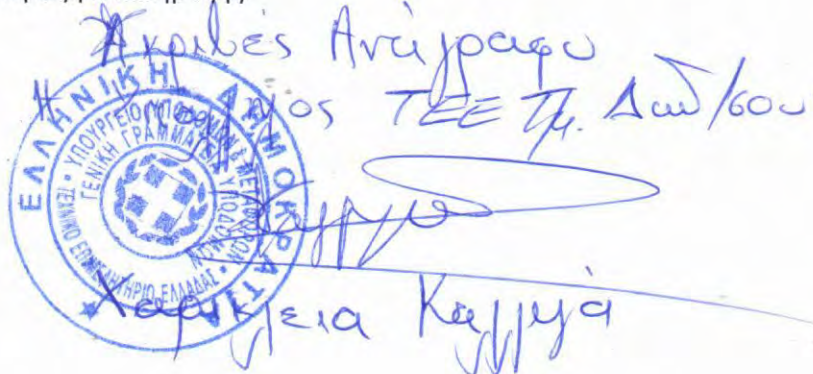 Ακριβές Αντίγραφο
Η
ΤΕΕ Τμ. Δωδ/σου
ΕΛΛΗΝΙΚΗ ΔΗΜΟΚΡΑΤΙΑ
ΥΠΟΥΡΓΕΙΟ ΥΠΟΔΟΜΩΝ & ΜΕΤΑΦΟΡΩΝ
ΓΕΝΙΚΗ ΓΡΑΜΜΑΤΕΙΑ ΥΠΟΔΟΜΩΝ
ΤΕΧΝΙΚΟ ΕΠΙΜΕΛΗΤΗΡΙΟ ΕΛΛΑΔΑΣ
Χαρίκλεια